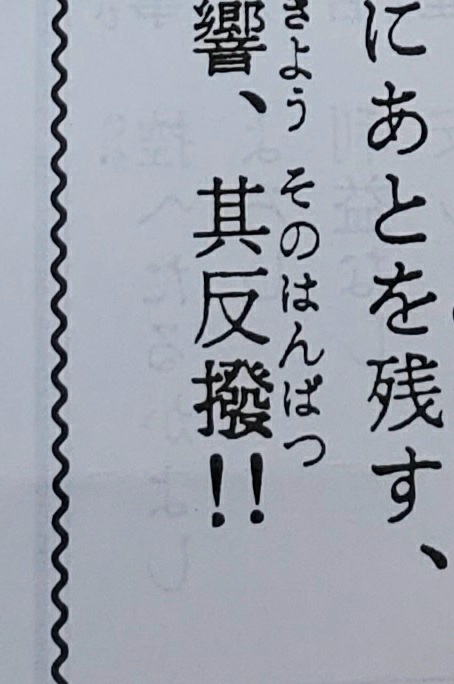 にあとを残す、
きよう そのはんぱつ
響、其反撥!!